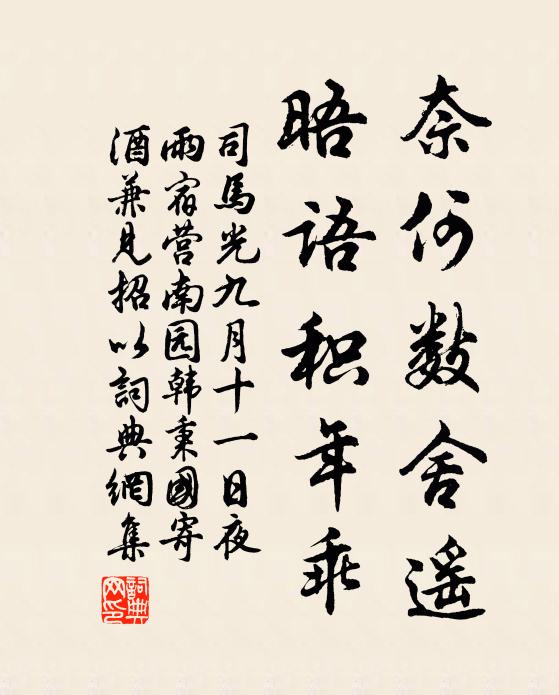 奈何数舍遥
晤语积年乖
司馬光九月十一日夜
雨宿营南园韩秉國寄
酒兼見招以詞典網集
詞典網印